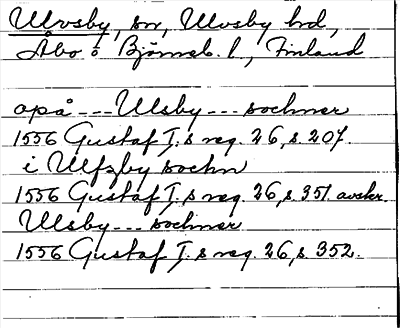 Ulvsby, sn, Ulvsby hd,
Åbo o Björneb. l, Finland
opå --- Ulsby --- sochner
1556 Gustaf I.s reg. 26, s. 207.
i Ulfzby sochn
1556 Gustaf I.s reg. 26, s. 351. avskr.
Ulsby --- sochner
1556 Gustaf I.s reg. 26, s. 352.